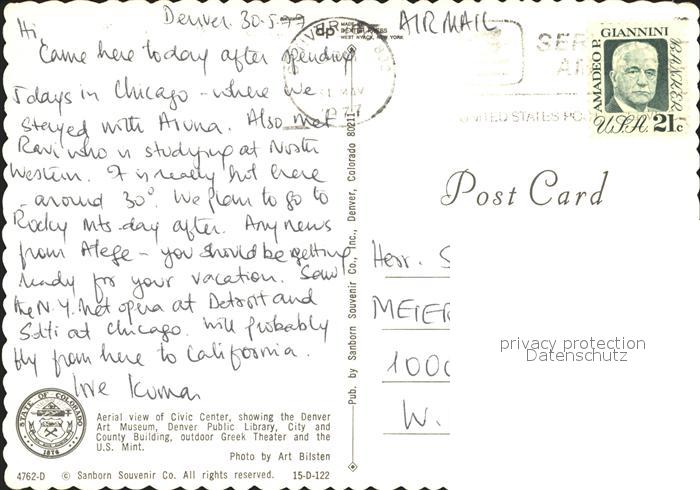 Denver 30-5-77
Hi,
Came here today after spending
5 days in Chicago - where we
stayed with Aruna. Also met
Ravi who is studying at North
Western. It is really hot here
- around 30°. We plan to go to
Rocky Mts. day after. Any news
from - you should be getting
ready for your vacation. Saw
the N.Y. Met opera at Detroit and
Solti at Chicago. Will probably
fly from here to California.
Love Kumar
STATE OF COLORADO
1876
Aerial view of Civic Center, showing the Denver
Art Museum, Denver Public Library, City and
County Building, outdoor Greek Theater and the
U.S. Mint.
Photo by Art Bilsten
4762-D © Sanborn Souvenir Co. All rights reserved. 15-D-122
Pub. by Sanborn Souvenir Co., Inc., Denver, Colorado 80211
dp MADE BY
DEXTER PRESS
WEST NYACK, NEW YORK
AIRMAIL
DENVER
MAY
1977
UNITED STATES
AMADEO P. GIANNINI
BANKER
USA 21c
Post Card
Herr. S
MEIER
1000
W.
privacy protection
Datenschutz